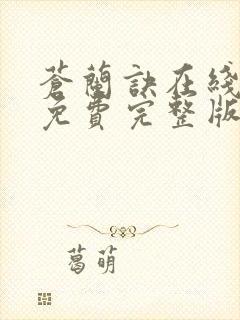 蒼蘭訣在綫
免費完整版
葛萌